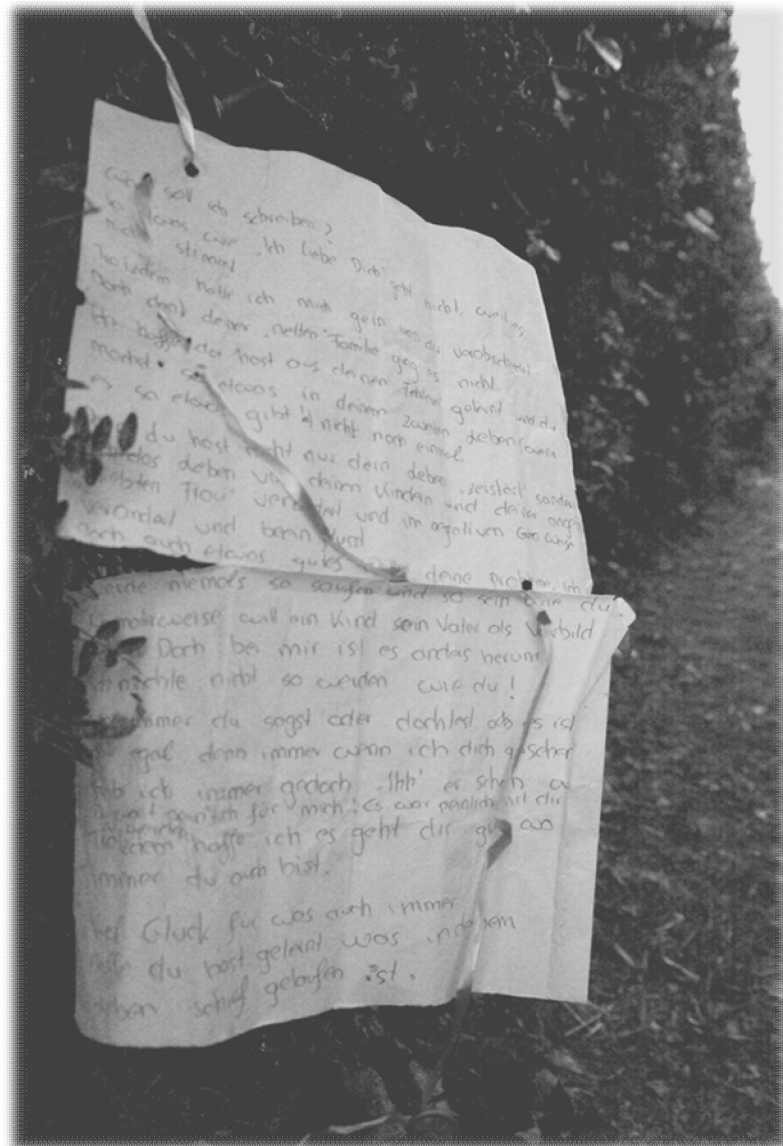 soll ich schreiben?
etwas wie "Ich liebe Dich" geht nicht, weil es
nicht stimmt
Trotzdem hätte ich mich gern von dir verabschiedet
Doch dank deiner "netten" Familie ging es nicht.
Ich hoffe du hast aus deinen Fehlern gelernt und du
machst so etwas in deinem zweiten Leben
es so etwas gibt nicht noch einmal.
du hast nicht nur dein Leben "zerstört" sondern
das Leben von deinen Kindern und deiner ange
liebten Frau" und im negativen
und beeinflusst
auch etwas gutes deine Probleme. Ich
werde niemals so saufen und so sein wie du.
Normalerweise will ein Kind sein Vater als Vorbild
Doch bei mir ist es anders herum
möchte nicht so werden wie du!
immer du sagst oder dachtest ob es ist
egal denn immer wenn ich dich gesehen
hab ich immer gedach "Ihh" er schon
peinlich für mich! Es war peinlich mit dir
Trotzdem hoffe ich es geht dir gut wo
immer du auch bist.
Viel Glück für was auch immer
hoffe du hast gelernt was in deinem
Leben schief gelaufen ist.